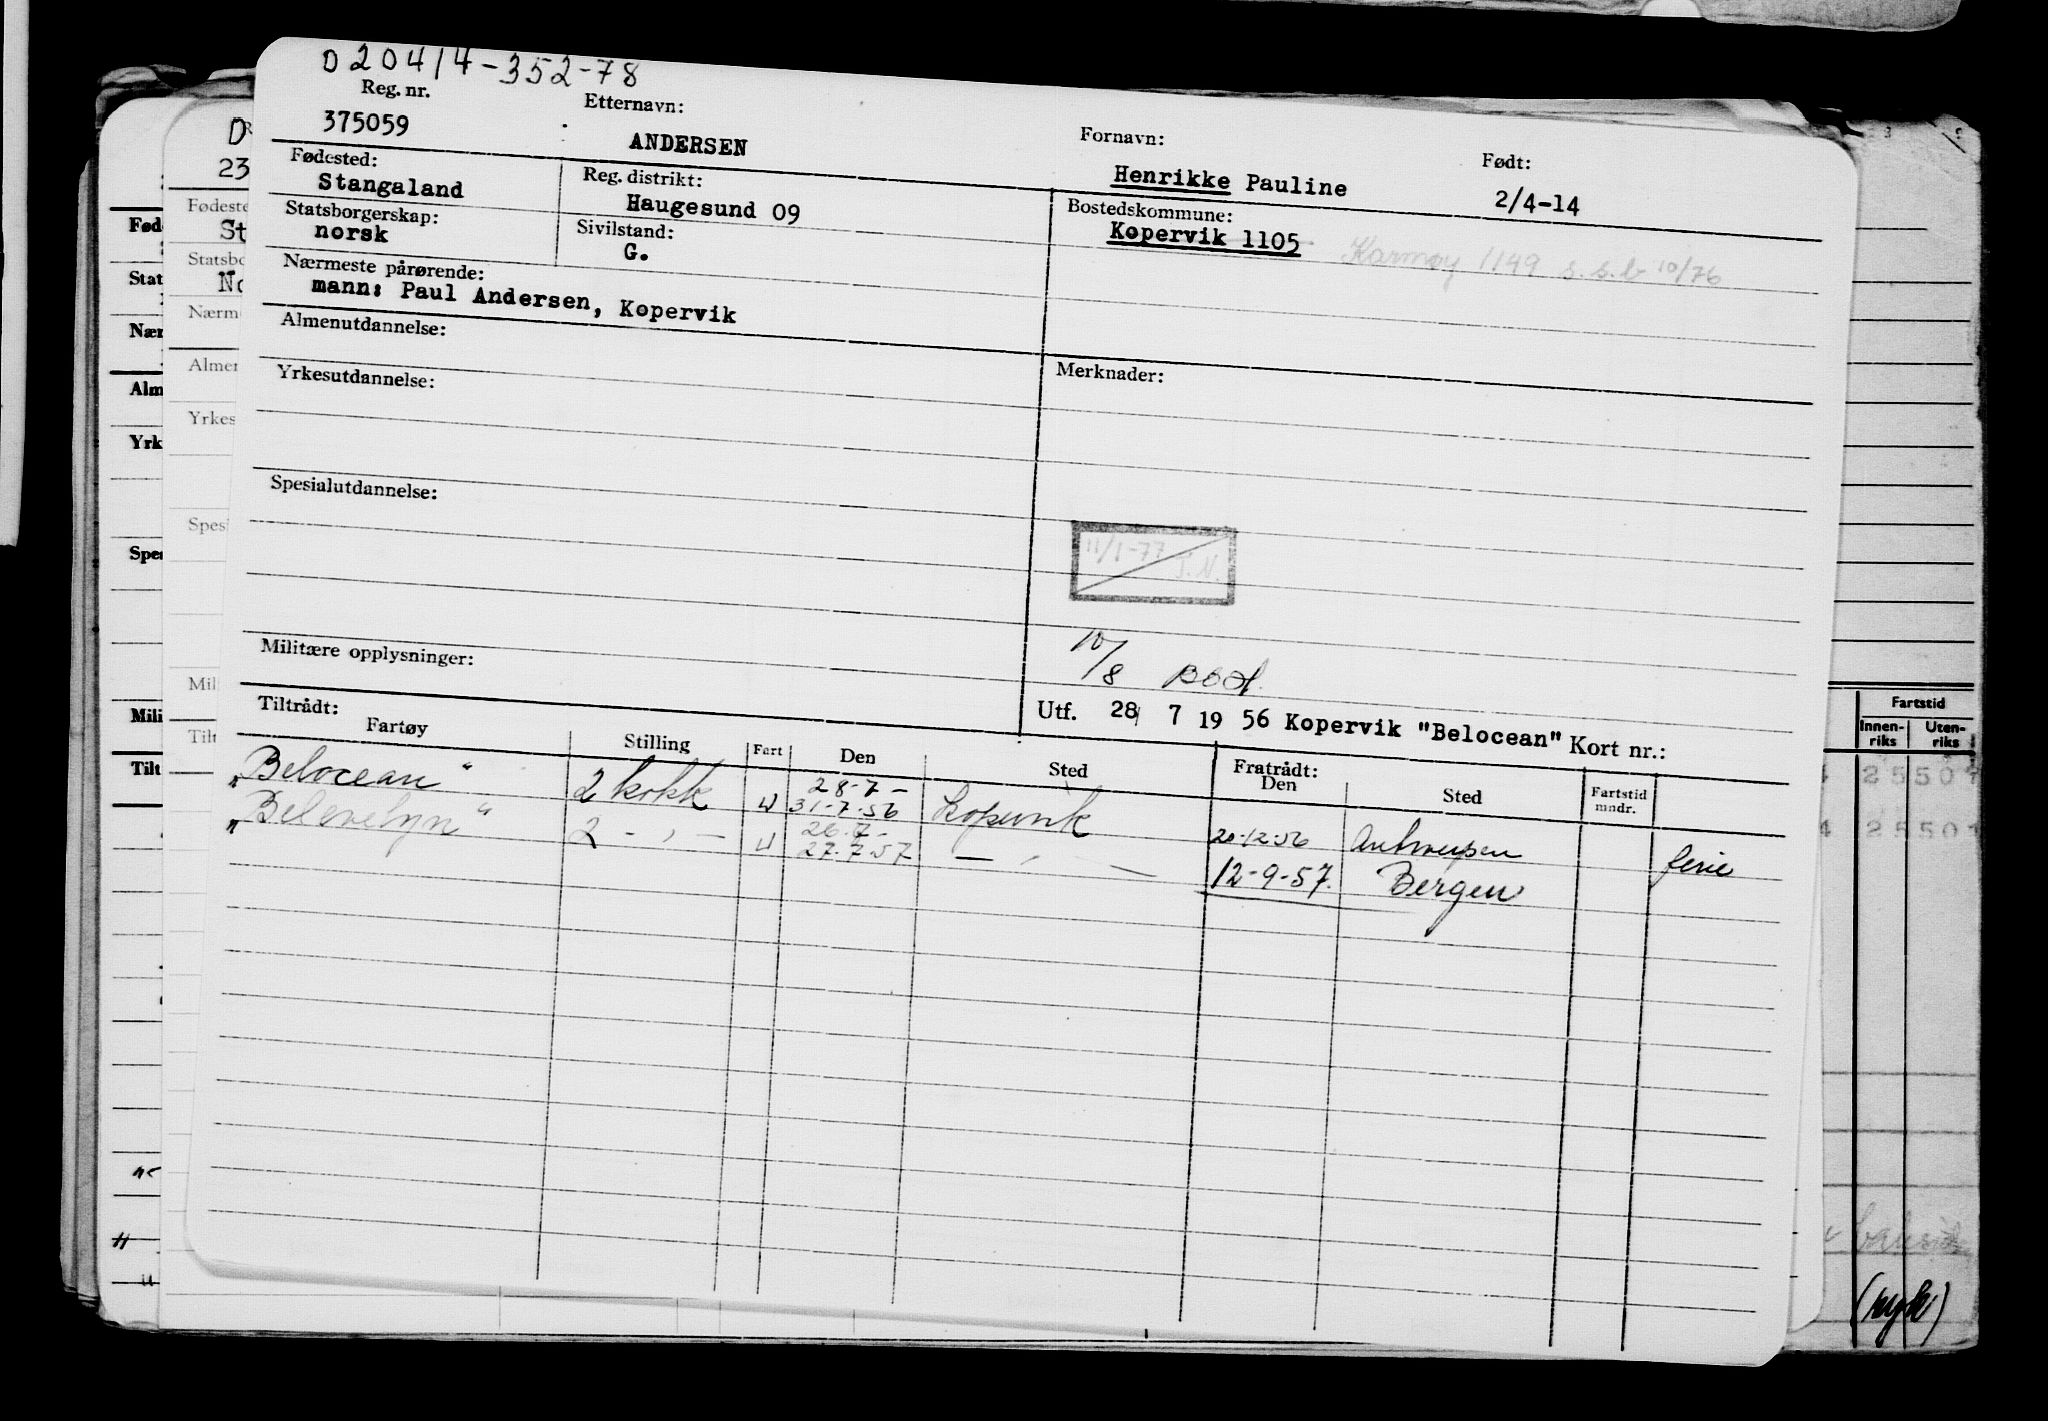 D 20414-352-78
Reg. nr. Etternavn: Fornavn: Født:
375059 ANDERSEN Henrikke Pauline 2/4-14
Fødested: Reg. distrikt: Bostedskommune:
Stangaland Haugesund 09 Kopervik 1105 Karmøy 1149 s.s.b 10/76
Statsborgerskap: Sivilstand:
norsk G.
Nærmeste pårørende:
mann: Paul Andersen, Kopervik
Almenutdannelse:
Yrkesutdannelse: Merknader:
Spesialutdannelse:
11/1-77
Militære opplysninger:
10/8
Tiltrådt: Utf. 28 7 19 56 Kopervik "Belocean" Kort nr.:
Fartøy Stilling Fart Den Sted Fratrådt: Den Sted Fartstid mndr.
"Belocean" 2 kokk U 28-7- 31-7-56 Kopervik 20-12-56 Antwerpen ferie
"Belevelyn" 2 - " - U 26.7- 27.7-57 - " - 12-9-57. Bergen
D
23
Fødeste
St
Statsbo
No
Nærm
Almer
Yrkes
Spesi
Mil
Tilt
Fød
Stat
Nær
Alm
Yrk
Spe
Mili
Tilt
Fartstid
Innen-riks Uten-riks